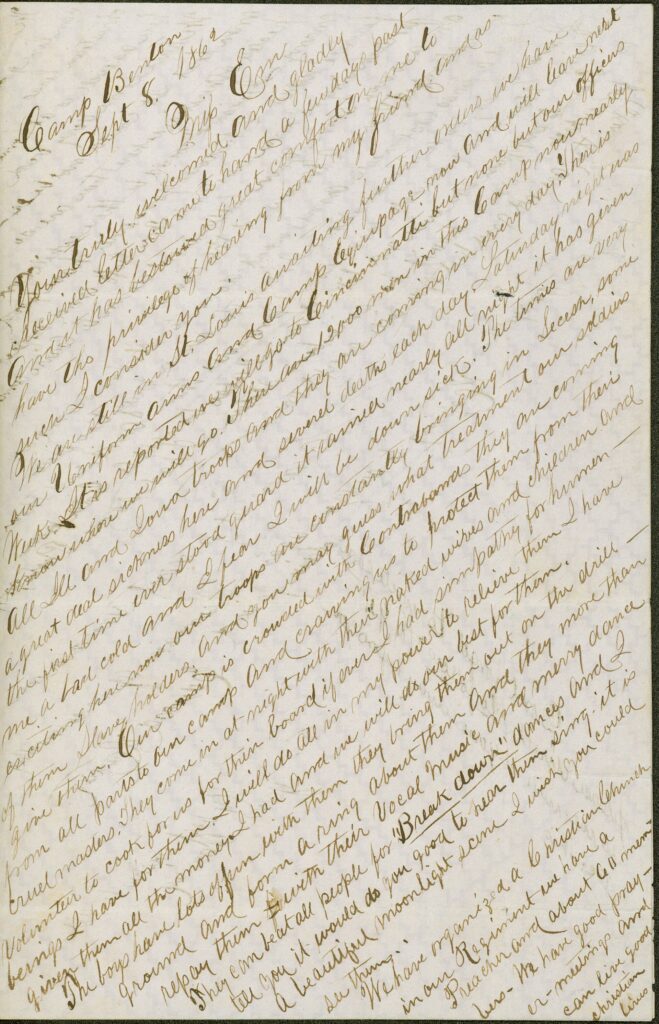 Camp Benton
Sept 8. 1862
Miss Em
Your truly welcomed and gladly
received letter came to hand a few days past
and it has bestowed great comfort on me to
have the privilege of hearing from my friend and as
such I consider you.
We are still in St. Louis awaiting further orders we have
our Uniform arms and Camp Equipage now and will leave next
Week. It is reported we will go to Cincinnatti but none but our officers
know where we will go. There are 12000 men in this Camp now nearly
all Ill and Iowa troops and they are coming in every day. There is
a great deal sickness here and several deaths each day. Saturday night was
the first time ever stood guard it rained nearly all night it has given
me a bad cold and I fear I will be down sick. The times are very
exciting here now our troops are constantly bringing in Secesh, some
of them Slave holders, and you may guess what treatment our soldiers
give them. Our camp is crowded with Contrabands they are coming
from all parts to our camp and craving us to protect them from their
cruel masters. They come in at night with their naked wives and children and
Volunteer to cook for us for their board if ever I had simpathy for human
beings I have for them. I will do all in my power to relieve them I have
given them all the money I had and we will do our best for them.
The boys have lots of fun with them they bring them out on the drill
ground and form a ring about them and they more than
repay them with their Vocal Music and merry dance
They can beat all people for "Break down" dances and I
tell you it would do you good to hear them sing. it is
a beautiful moonlight scene I wish you could
see them.
We have organized a Christian Church
in our Regiment we have a
Preacher and about 60 mem-
bers- We have good pray-
er-meetings and
can live good
christian
lives